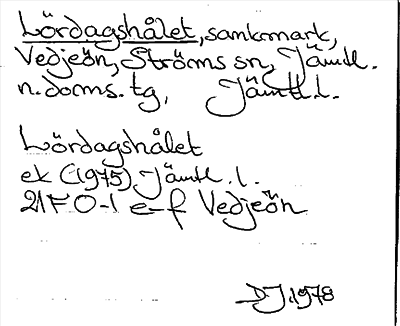 Lördagshålet, samkmark,
Vedjeön, Ströms sn, Jämtl.
n.doms. tg, Jämtl. l.
Lördagshålet
ek (1975) Jämtl. l.
21F 0-1 e-f Vedjeön
DJ.1978